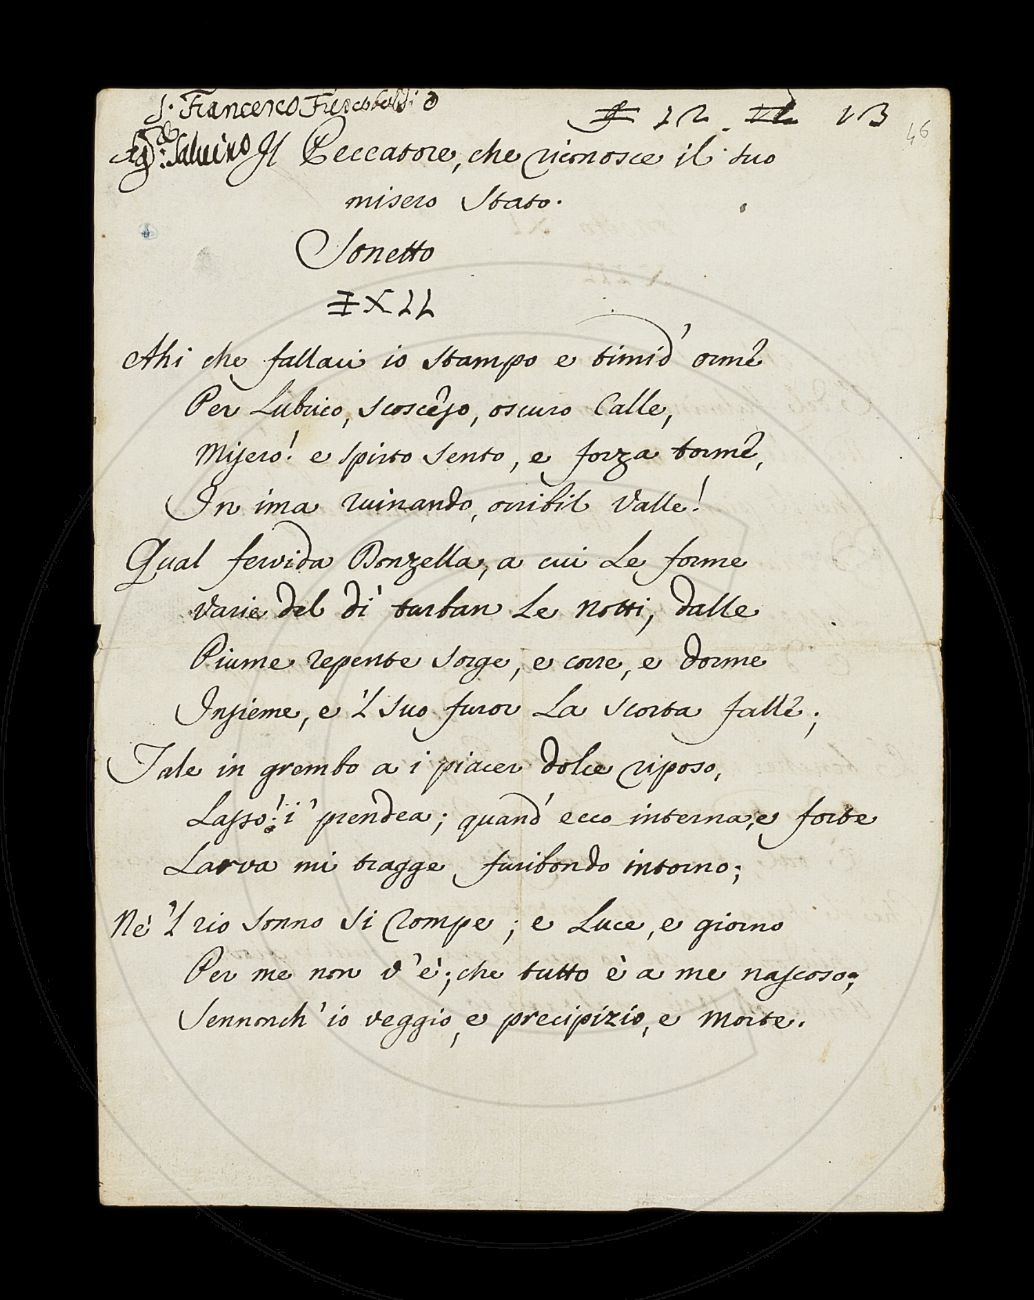 S. Francesco Frescobaldi
12. 13
46
Salvino Il Peccatore, che riconosce il suo
misero Stato.
Sonetto
XII
Ahi che fallaci io stampo e timid' orme
Per Lubrico, scosceso, oscuro Calle,
Misero! e spirto sento, e forza torme,
In ima ruinando, orribil Valle!
Qual fervida Donzella, a cui Le forme
Varie del dì turban Le notti, dalle
Piume repente sorge, e corre, e dorme
Insieme, e 'l suo furor La scorta falle;
Tale in grembo a i piacer dolce riposo,
Lasso! i' prendea; quand' ecco interna, e forte
Larva mi tragge furibondo intorno;
Nè 'l rio sonno si rompe; e Luce, e giorno
Per me non v'è; che tutto è a me nascoso;
Sennonch' io veggio, e precipizio, e Morte.